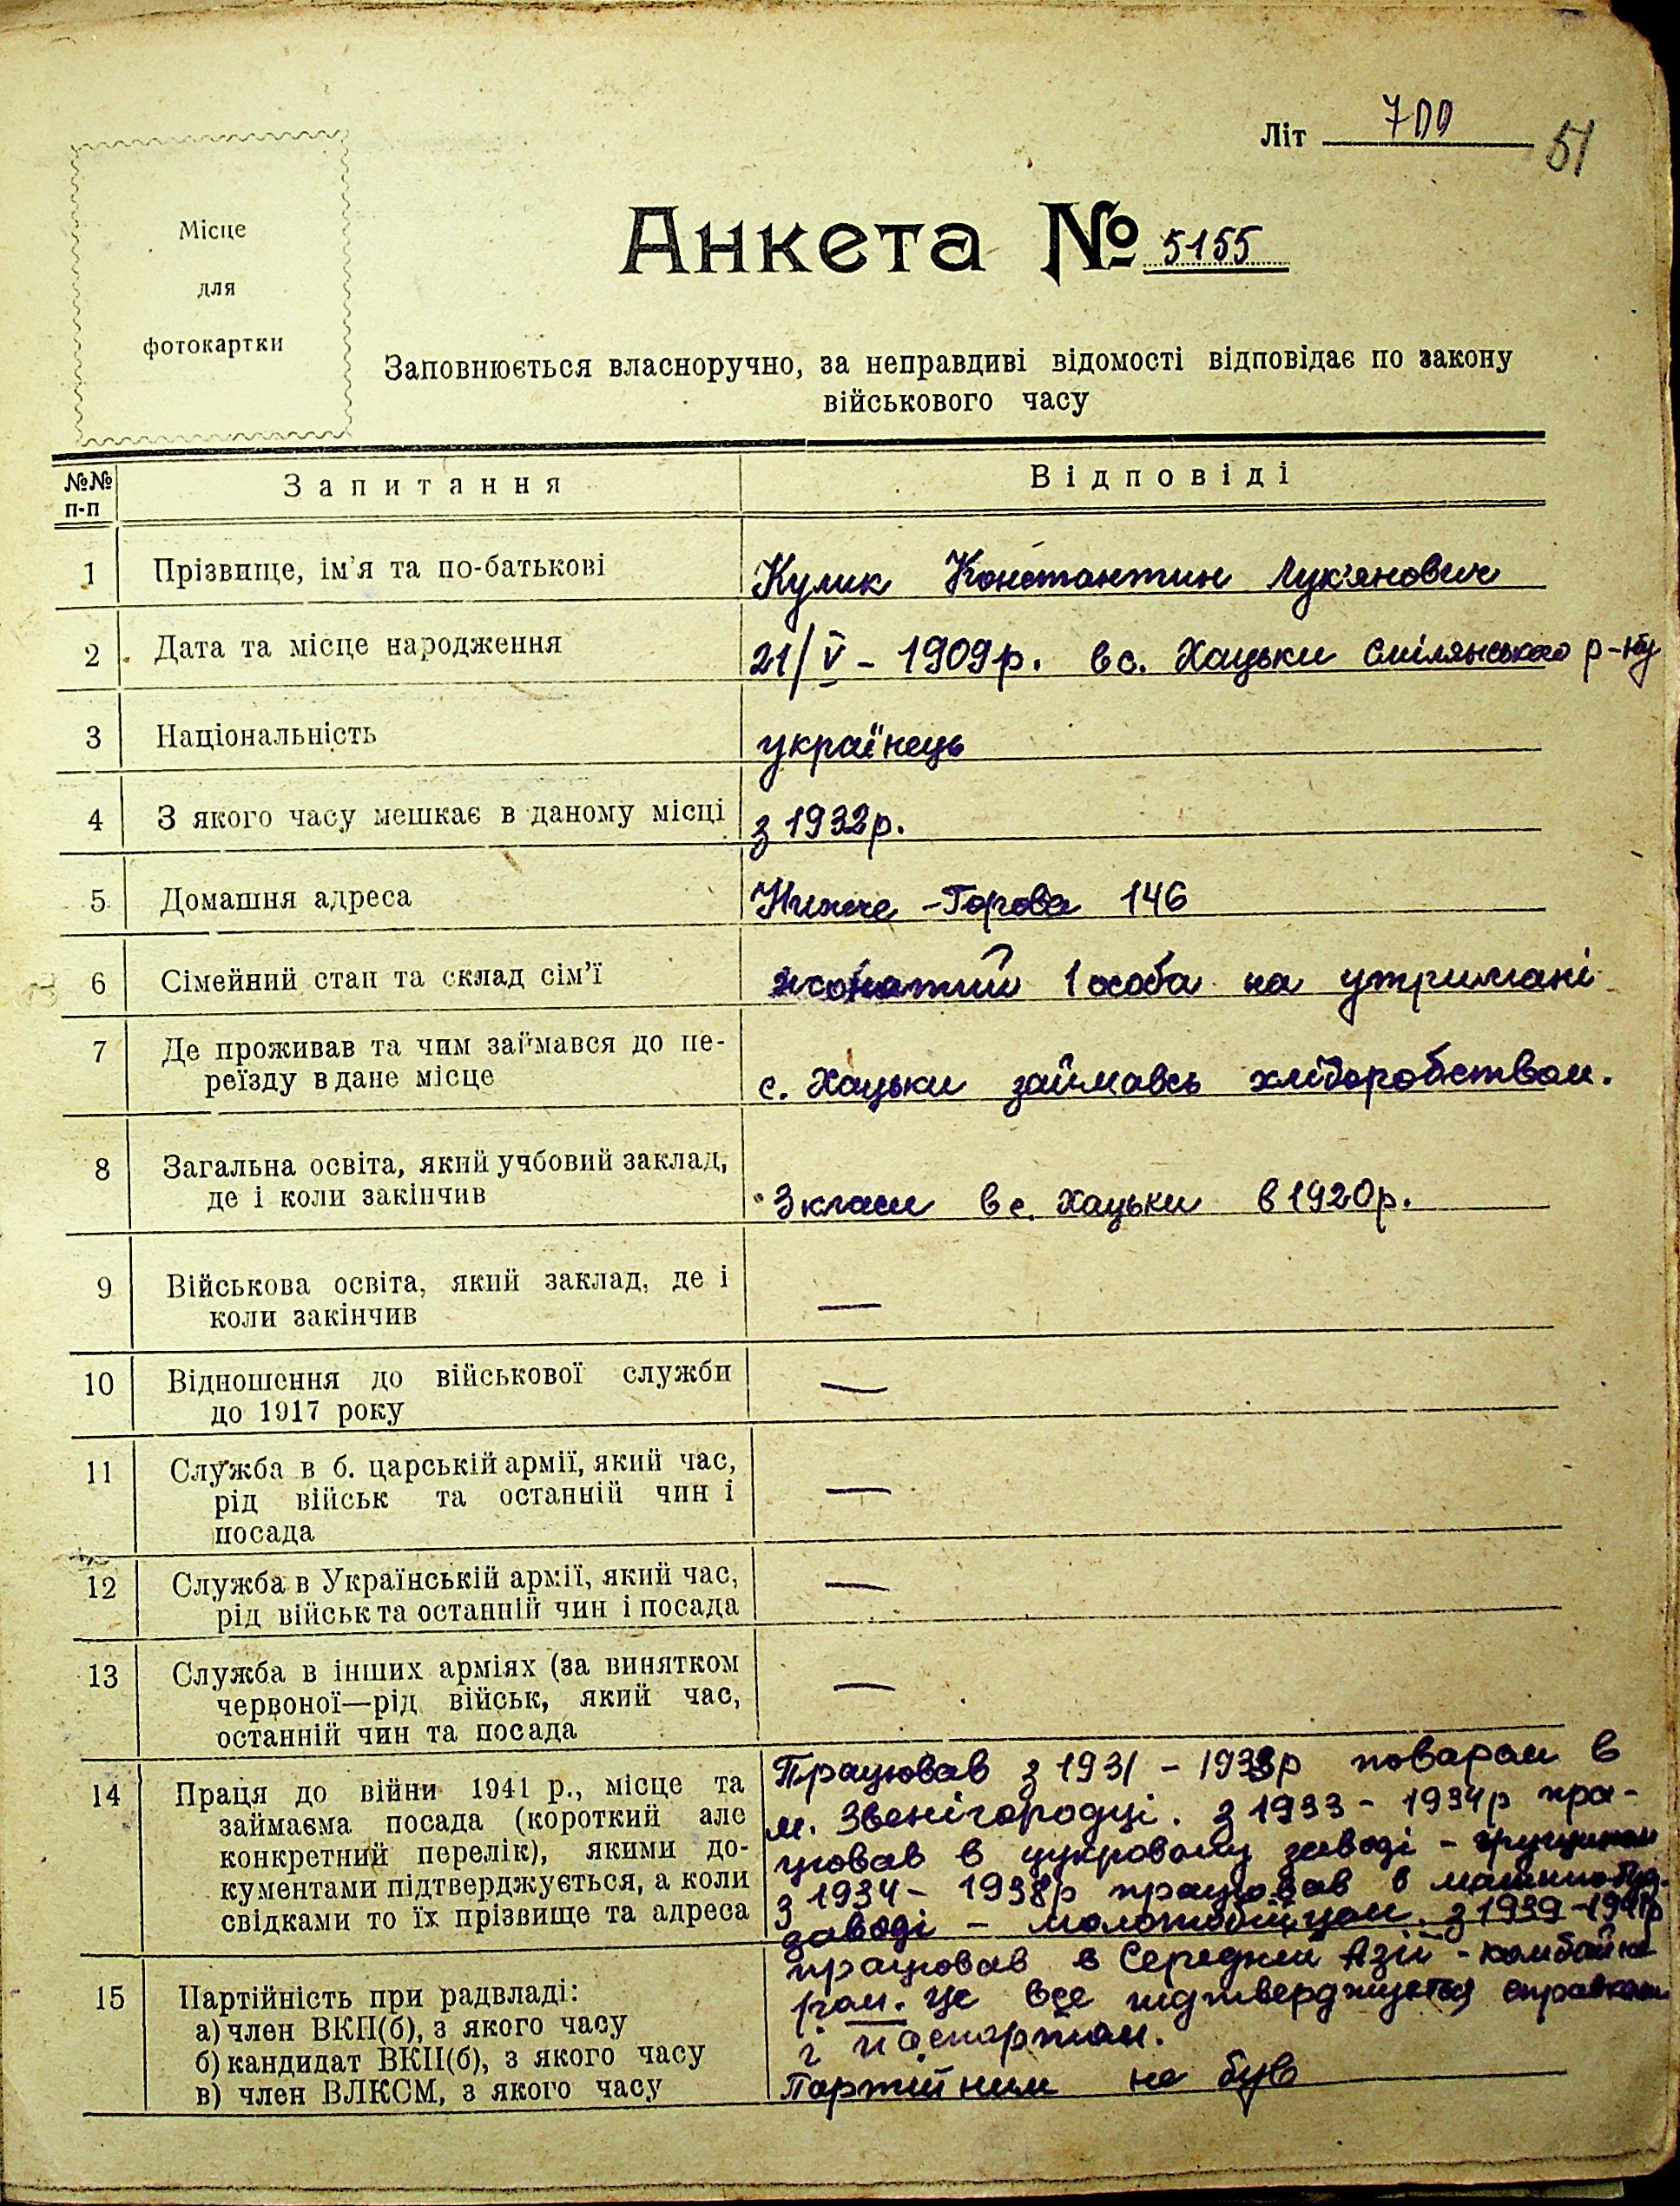 Літ 700 51
Місце
для
фотокартки
Анкета № 5155
Заповнюється власноручно, за неправдиві відомості відповідає по закону
військового часу
№№ п-п Запитання Відповіді
1 Прізвище, ім'я та по-батькові Кулик Константин Лук'янович
2 Дата та місце народження 21/V - 1909р. в с. Хацьки Смілянського р-ну
3 Національність українець
4 З якого часу мешкає в даному місці з 1932р.
5 Домашня адреса Нижче-Горова 146
6 Сімейний стан та склад сім'ї жонатий 1 особа на утримані
7 Де проживав та чим займався до пе-
реїзду в дане місце с. Хацьки займавсь хліборобством.
8 Загальна освіта, який учбовий заклад,
де і коли закінчив 3 класи в с. Хацьки в 1920р.
9 Військова освіта, який заклад, де і
коли закінчив —
10 Відношення до військової служби
до 1917 року —
11 Служба в б. царській армії, який час,
рід військ та останній чин і
посада —
12 Служба в Українській армії, який час,
рід військ та останній чин і посада —
13 Служба в інших арміях (за винятком
червоної—рід військ, який час,
останній чин та посада —
14 Праця до війни 1941 р., місце та
займаєма посада (короткий але
конкретний перелік), якими до-
кументами підтверджується, а коли
свідками то їх прізвище та адреса
Працював з 1931 - 1933р поваром в
м. Звенігородці. з 1933 - 1934р пра-
цював в цукровому заводі -
з 1934 - 1938р працював в машинобуд.
заводі - молотобійцем. з 1939-1941р
працював в Середній Азії - комбайне-
ром. це все підтверджується справками
і паспортом.
15 Партійність при радвладі:
а) член ВКП(б), з якого часу
б) кандидат ВКП(б), з якого часу
в) член ВЛКСМ, з якого часу
Партійним не був